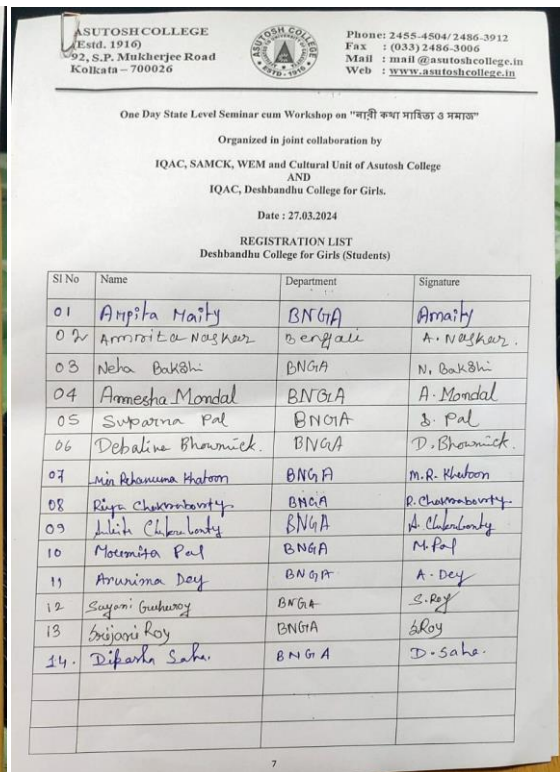 ASUTOSH COLLEGE
(Estd. 1916)
92, S.P. Mukherjee Road
Kolkata – 700026
ASUTOSH COLLEGE
ESTD - 1916
Phone: 2455-4504/ 2486-3912
Fax : (033) 2486-3006
Mail : mail@asutoshcollege.in
Web : www.asutoshcollege.in
One Day State Level Seminar cum Workshop on "নারী কথা সাহিত্য ও সমাজ"
Organized in joint collaboration by
IQAC, SAMCK, WEM and Cultural Unit of Asutosh College
AND
IQAC, Deshbandhu College for Girls.
Date : 27.03.2024
REGISTRATION LIST
Deshbandhu College for Girls (Students)
Sl No Name Department Signature
01 Arpita Maity BNGA Amaity
02 Amrita Naskar Bengali A. Naskar.
03 Neha Bakshi BNGA N. Bakshi
04 Annesha Mondal BNGA A. Mondal
05 Suparna Pal BNGA S. Pal
06 Debaline Bhowmick. BNGA D. Bhowmick.
07 Khatoon BNGA M.R. Khatoon
08 Riya Chakraborty BNGA R. Chakraborty.
09 Chakraborty BNGA A. Chakraborty
10 Moumita Pal BNGA M. Pal
11 Arunima Dey BNGA A. Dey
12 Sayani BNGA S. Roy
13 Srijani Roy BNGA SRoy
14. Dipasha Saha. BNGA D. Saha.
7